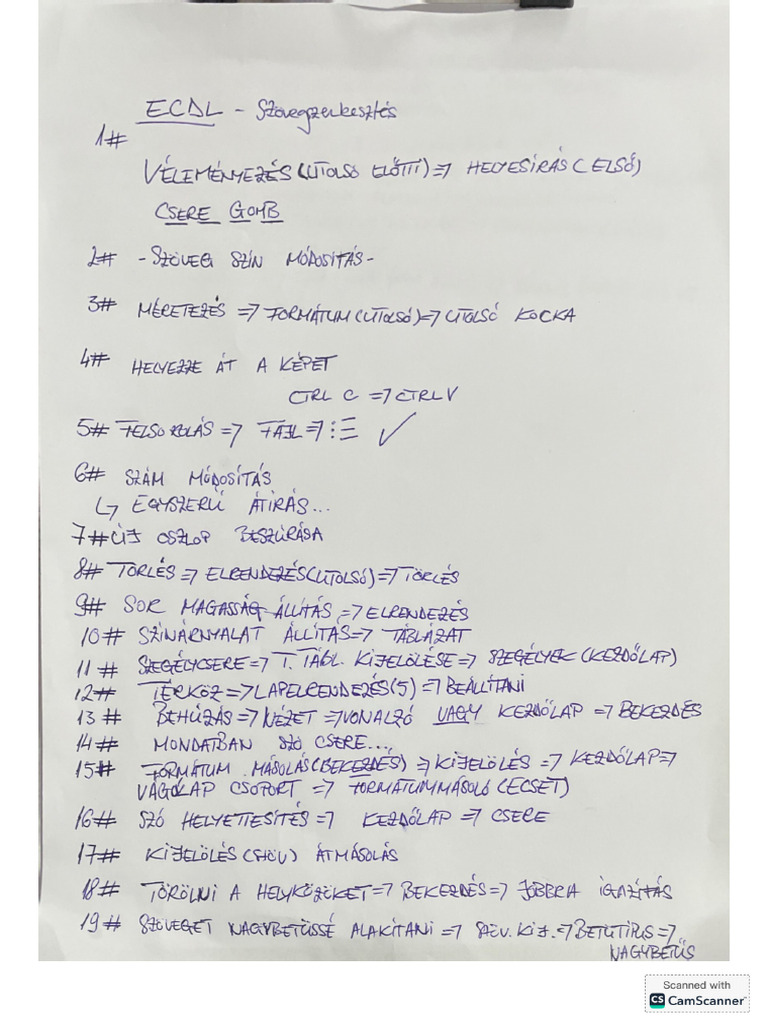 ECDL - Szövegszerkesztés
1#
VÉLEMÉNYEZÉS (UTOLSÓ ELŐTTI) => HELYESÍRÁS (ELSŐ)
CSERE GOMB
2# - SZÖVEG SZÍN MÓDOSÍTÁS -
3# MÉRETEZÉS => FORMÁTUM (UTOLSÓ) => UTOLSÓ KOCKA
4# HELYEZZE ÁT A KÉPET
CTRL C => CTRL V
5# FELSOROLÁS => FAJL => ⋮☰ ✓
6# SZÁM MÓDOSÍTÁS
↳ EGYSZERŰ ÁTÍRÁS...
7# ÚJ OSZLOP BESZÚRÁSA
8# TÖRLÉS => ELRENDEZÉS (UTOLSÓ) => TÖRLÉS
9# SOR MAGASSÁG ÁLLÍTÁS => ELRENDEZÉS
10# SZÍNÁRNYALAT ÁLLÍTÁS => TÁBLÁZAT
11# SZEGÉLYCSERE => T. TÁBL. KIJELÖLÉSE => SZEGÉLYEK (KEZDŐLAP)
12# TÉRKÖZ => LAPELRENDEZÉS (5) => BEÁLLÍTANI
13# BEHÚZÁS => NÉZET => VONALZÓ VAGY KEZDŐLAP => BEKEZDÉS
14# MONDATBAN SZÓ CSERE...
15# FORMÁTUM MÁSOLÁS (BEKEZDÉS) => KIJELÖLÉS => KEZDŐLAP =>
VÁGÓLAP CSOPORT => FORMÁTUMMÁSOLÓ (ECSET)
16# SZÓ HELYETTESÍTÉS => KEZDŐLAP => CSERE
17# KIJELÖLÉS ÁTMÁSOLÁS
18# TÖRÖLNI A HELYKÖZÖKET => BEKEZDÉS => JOBBRA IGAZÍTÁS
19# SZÖVEGET NAGYBETŰSSÉ ALAKÍTANI => SZÖV. KIJ. => BETŰTIPUS =>
NAGYBETŰS
Scanned with
CS CamScanner